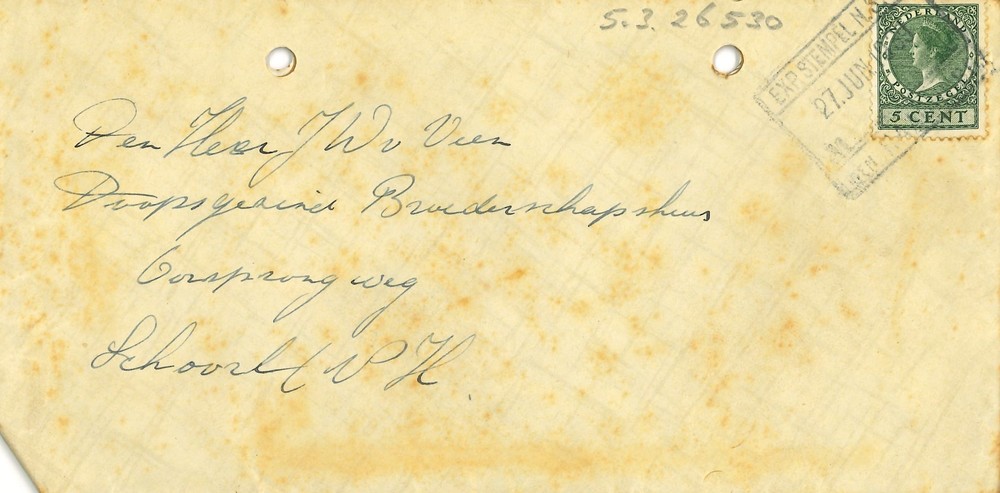 5.3.26530
EXP. STEMPEL N.
27.JUN.
NEDERLAND
POSTZEGEL
5 CENT
Den Heer J W v Veen
Doopsgezind Broederschapshuis
Oorsprongweg
Schoorl (N H.